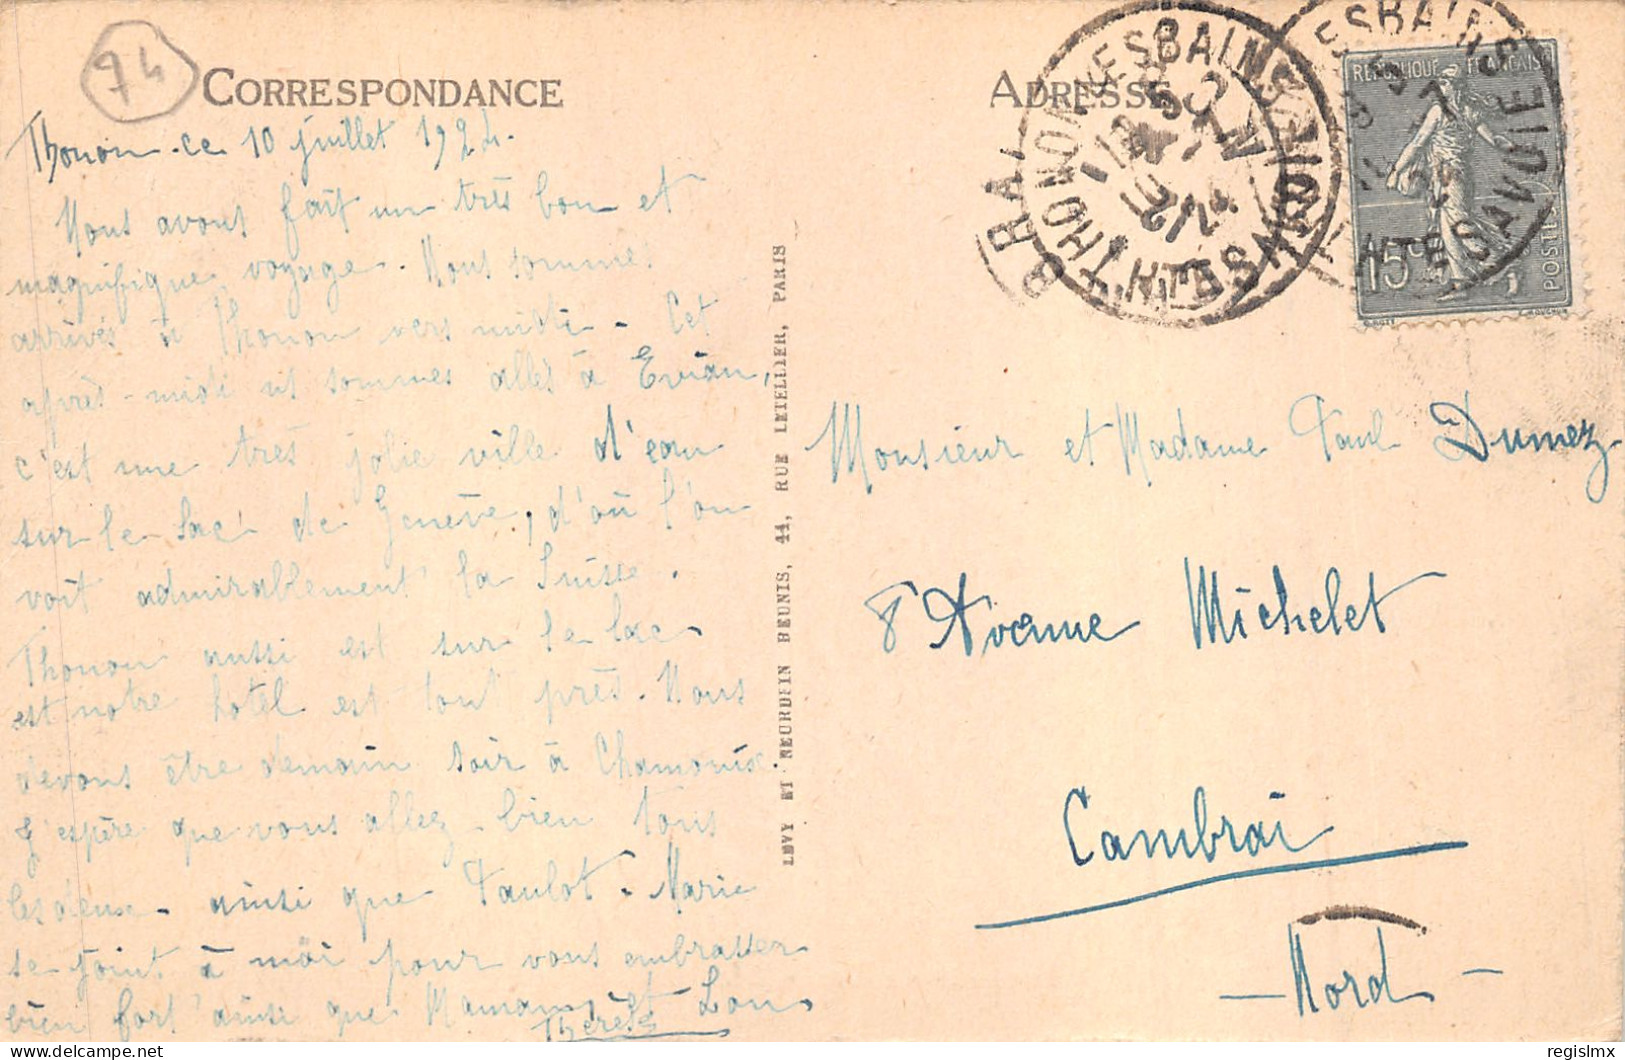 74
CORRESPONDANCE
Thonon ce 10 juillet 1924.
Nous avons fait un très bon et
magnifique voyage. Nous sommes
arrivés à Thonon vers midi. Cet
après-midi ns sommes allés à Evian,
c'est une très jolie ville d'eau
sur le lac de Genève, d'où l'on
voit admirablement la Suisse.
Thonon aussi est sur le lac
est notre hotel est tout près. Nous
devons être demain soir à Chamonix.
J'espère que vous allez bien tous
les deux ainsi que Paulot. Marie
se joint à moi pour vous embrasser
bien fort ainsi que Maman et Lou
Thérèse
LEVY ET NEURDEIN REUNIS, 44, RUE LETELLIER, PARIS
ADRESSE
THONON LES BAINS
HTE SAVOIE
THONON LES BAINS
HTE SAVOIE
REPUBLIQUE FRANÇAISE
15c
POSTES
Monsieur et Madame Paul Dumez
8 Avenue Michelet
Cambrai
Nord
regislmx